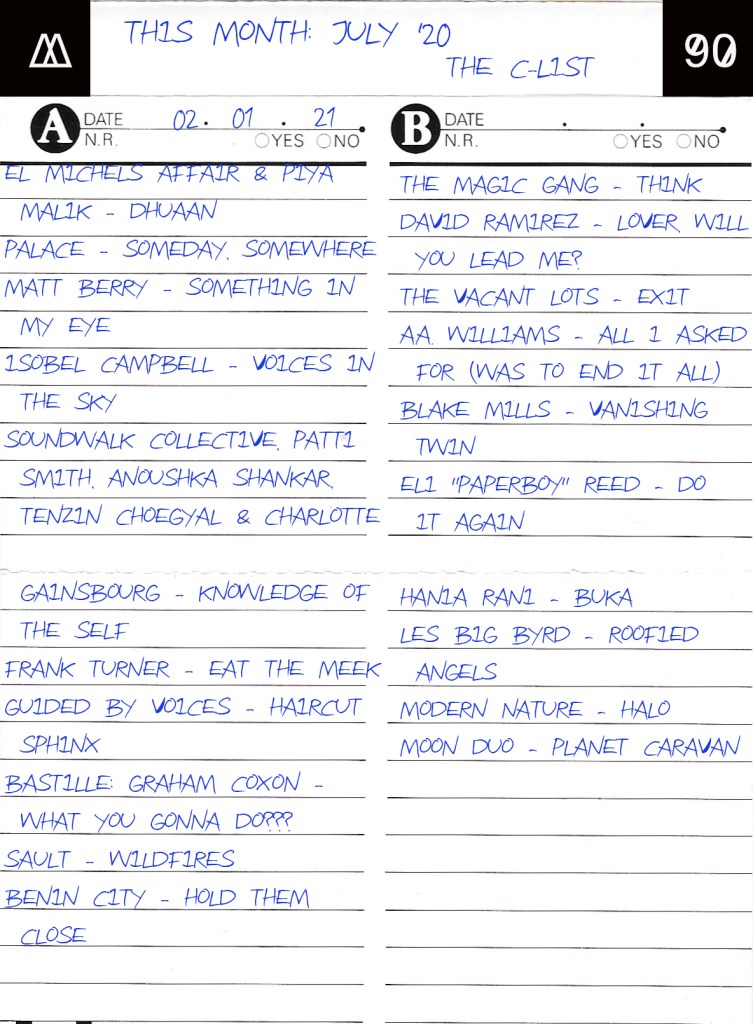 THIS MONTH: JULY '20
THE C-LIST
90
A DATE 02. 01 . 21
N.R. YES NO
EL MICHELS AFFAIR & PIYA
MALIK - DHUAAN
PALACE - SOMEDAY, SOMEWHERE
MATT BERRY - SOMETHING IN
MY EYE
ISOBEL CAMPBELL - VOICES IN
THE SKY
SOUNDWALK COLLECTIVE, PATTI
SMITH, ANOUSHKA SHANKAR,
TENZIN CHOEGYAL & CHARLOTTE
GAINSBOURG - KNOWLEDGE OF
THE SELF
FRANK TURNER - EAT THE MEEK
GUIDED BY VOICES - HAIRCUT
SPHINX
BASTILLE; GRAHAM COXON -
WHAT YOU GONNA DO???
SAULT - WILDFIRES
BENIN CITY - HOLD THEM
CLOSE
B DATE . .
N.R. YES NO
THE MAGIC GANG - THINK
DAVID RAMIREZ - LOVER, WILL
YOU LEAD ME?
THE VACANT LOTS - EXIT
A.A. WILLIAMS - ALL I ASKED
FOR (WAS TO END IT ALL)
BLAKE MILLS - VANISHING
TWIN
ELI "PAPERBOY" REED - DO
IT AGAIN
HANIA RANI - BUKA
LES BIG BYRD - ROOFIED
ANGELS
MODERN NATURE - HALO
MOON DUO - PLANET CARAVAN